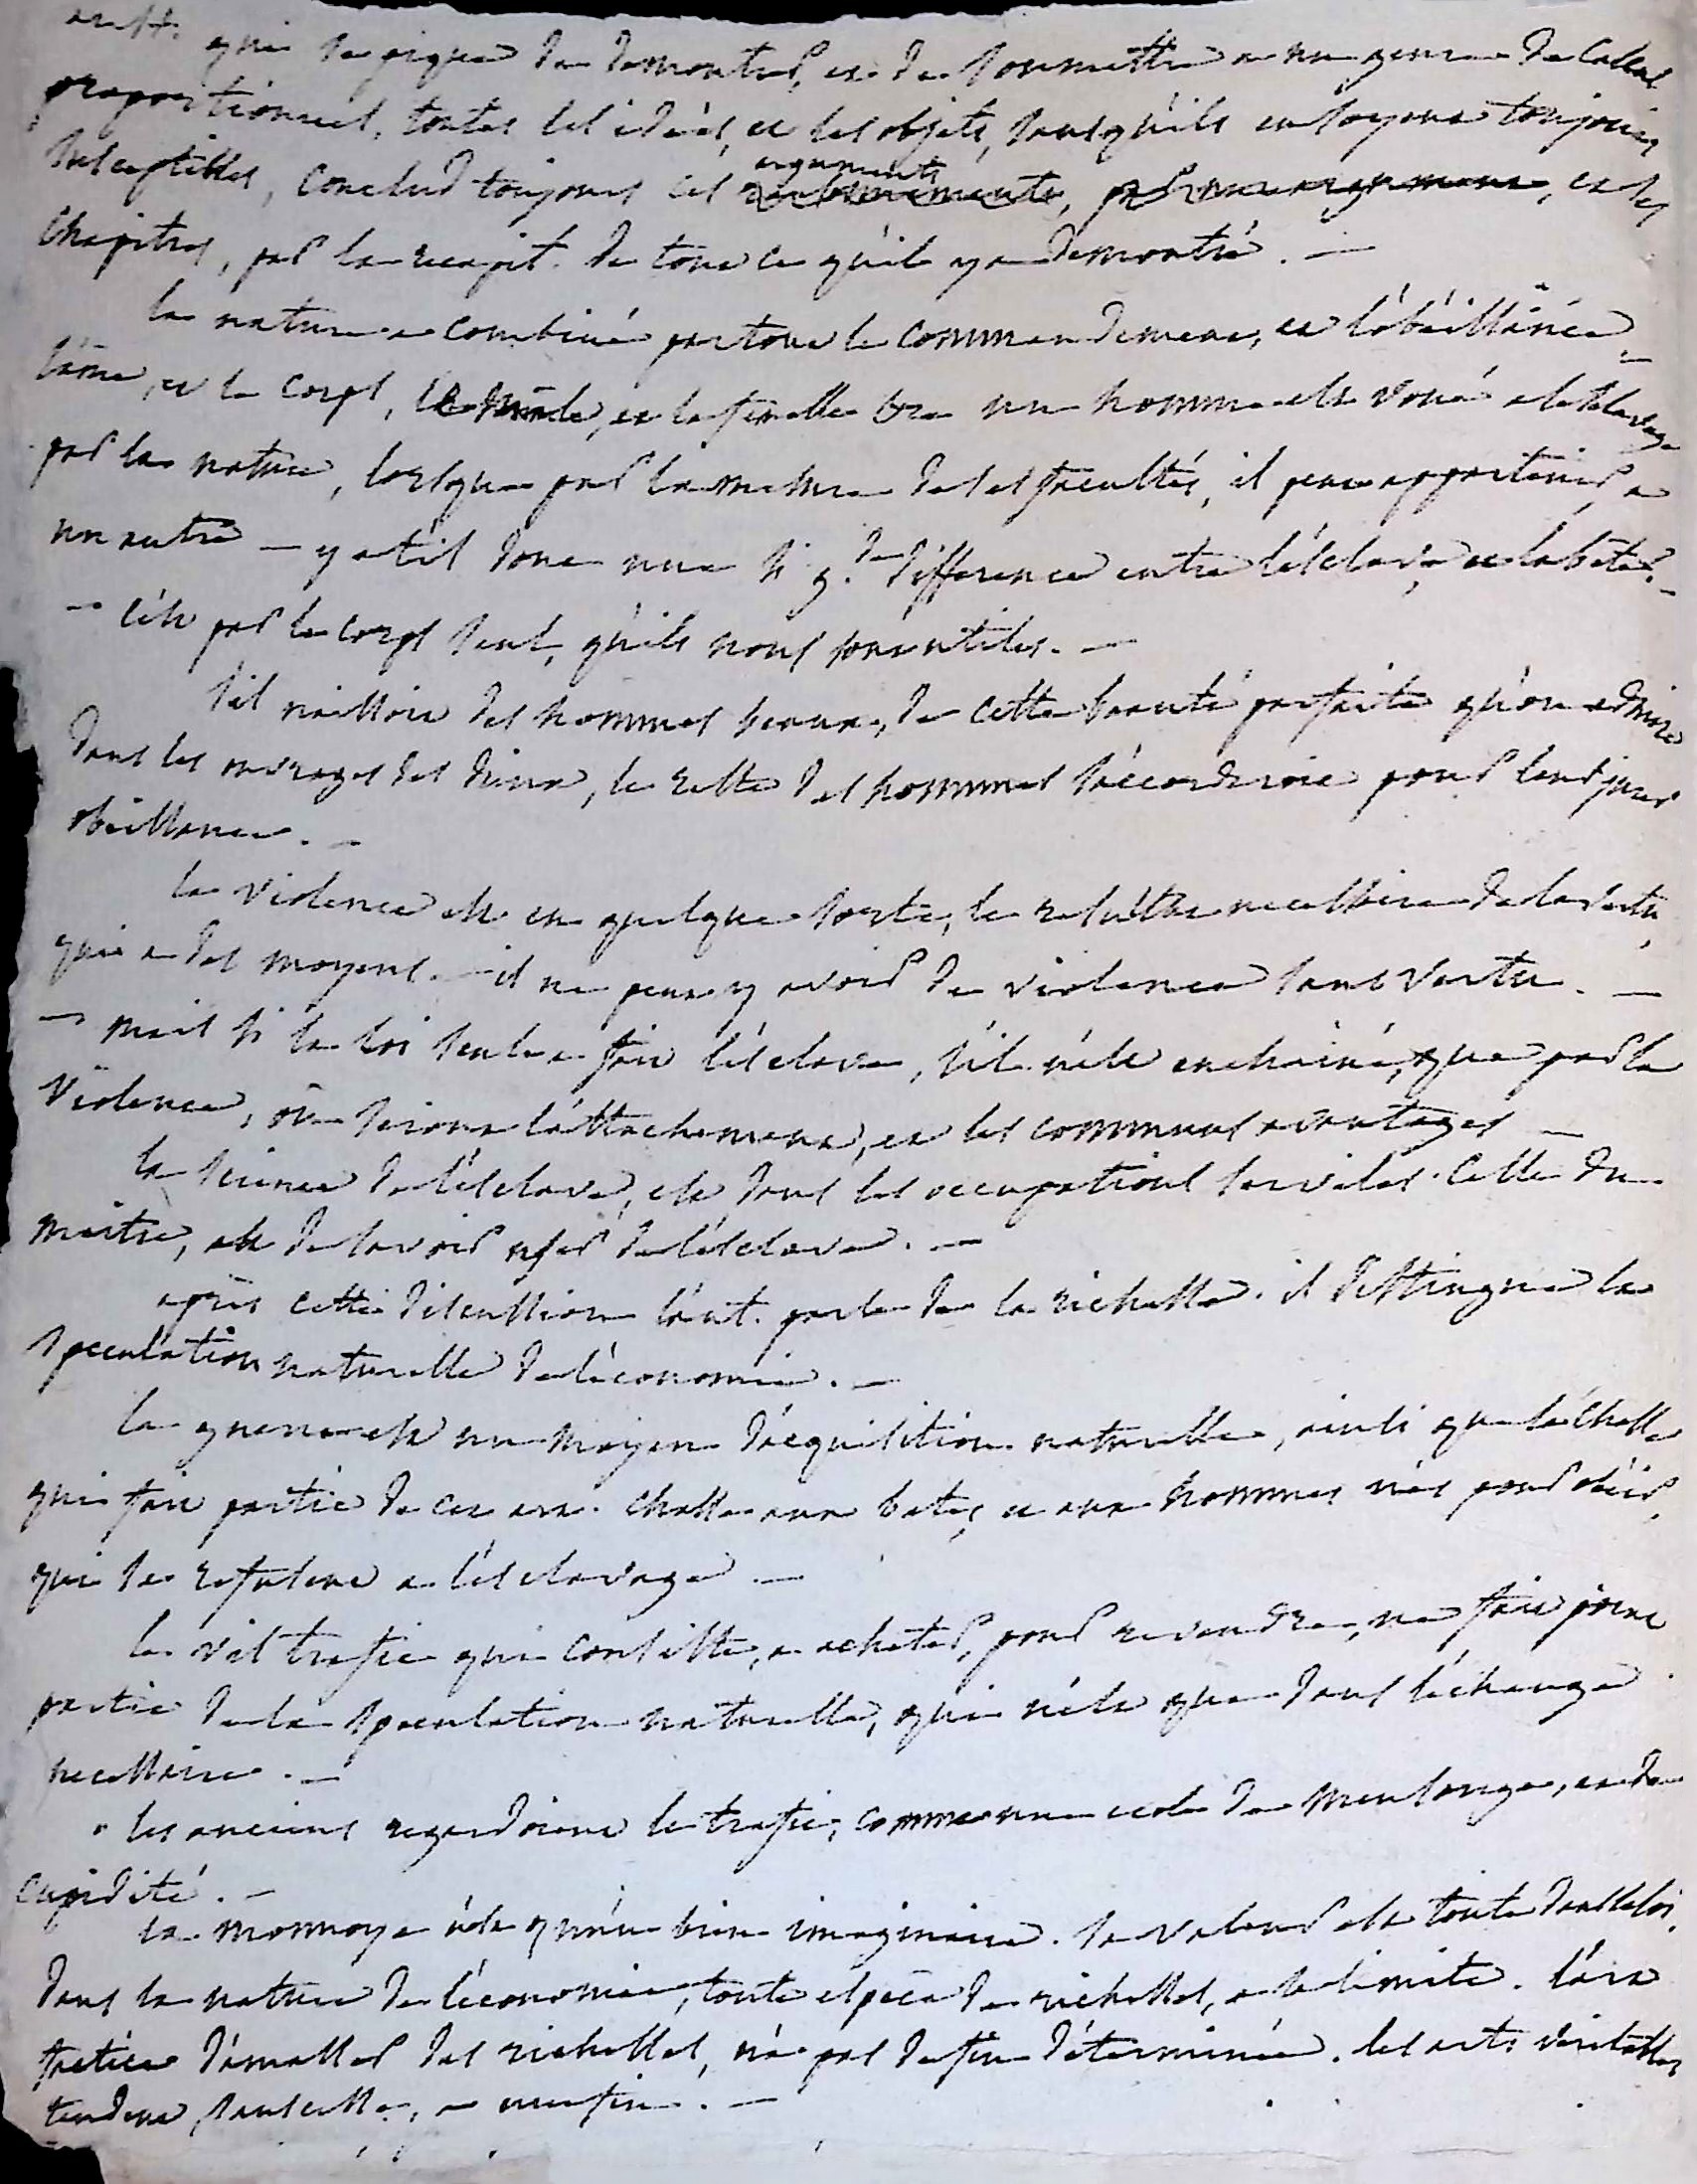 arist. qui se pique de demontrer, et de soumettre a un genre de calcul
proportionnel, toutes les idées, et les objets, sans qu'ils en soyent toujours
susceptibles, conclud toujours ses arguments, et ses
chapitres, par la recapit. de tout ce qu'il y a demontré. —
la nature a combiné partout le commandement, et l'obéissance =
l'âme, et le corps, le mâle, et la femelle &ra un homme est voué a l'esclavage
par la nature, lorsque par la mesure de ses facultés, il peut appartenir a
un autre — y a t'il donc une si gde. difference entre l'esclave, et la bête ? –
– c'est par le corps seul, qu'ils nous sont utiles. —
s'il naissoit des hommes beaux, de cette beauté parfaite qu'on admire
dans les ouvrages des dieux, le reste des hommes s'accorderoit pour leur jurer
obeissance. –
la violence est en quelque sorte, le resultat necessaire de la vertu,
qui a des moyens. il ne peut y avoir de violence sans vertu. —
— mais si la loi seule a fait l'esclave, s'il n'est enchainé, que par la
violence, où seront l'attachement, et les communs avantages —
la science de l'esclave, est dans les occupations serviles. celle du
maitre, est de savoir user de l'esclave. —
après cette discussion l'aut. parle de la richesse. il distingue la
speculation naturelle de l'économie. —
la guerre est un moyen d'acquisition naturelle, ainsi que la chasse
qui fait partie de cet art. chasse aux betes, et aux hommes nés pour obéir,
qui se refusent a l'esclavage —
le vil trafic qui consiste, a acheter, pour revendre, ne fait point
partie de la speculation naturelle, qui n'est que dans l'échange
necessaire. —
" les anciens regardoient le trafic, comme une ecole de mensonge, et de
cupidité. –
la monnoye n'est qu'un bien imaginaire. sa valeur est toute dans la loi.
dans la nature de l'économie, toute espèce de richesses, a sa limite. l'art
factice d'amasser des richesses, n'a pas de fin déterminée. les arts véritables
tendent sans cesse, a une fin. —